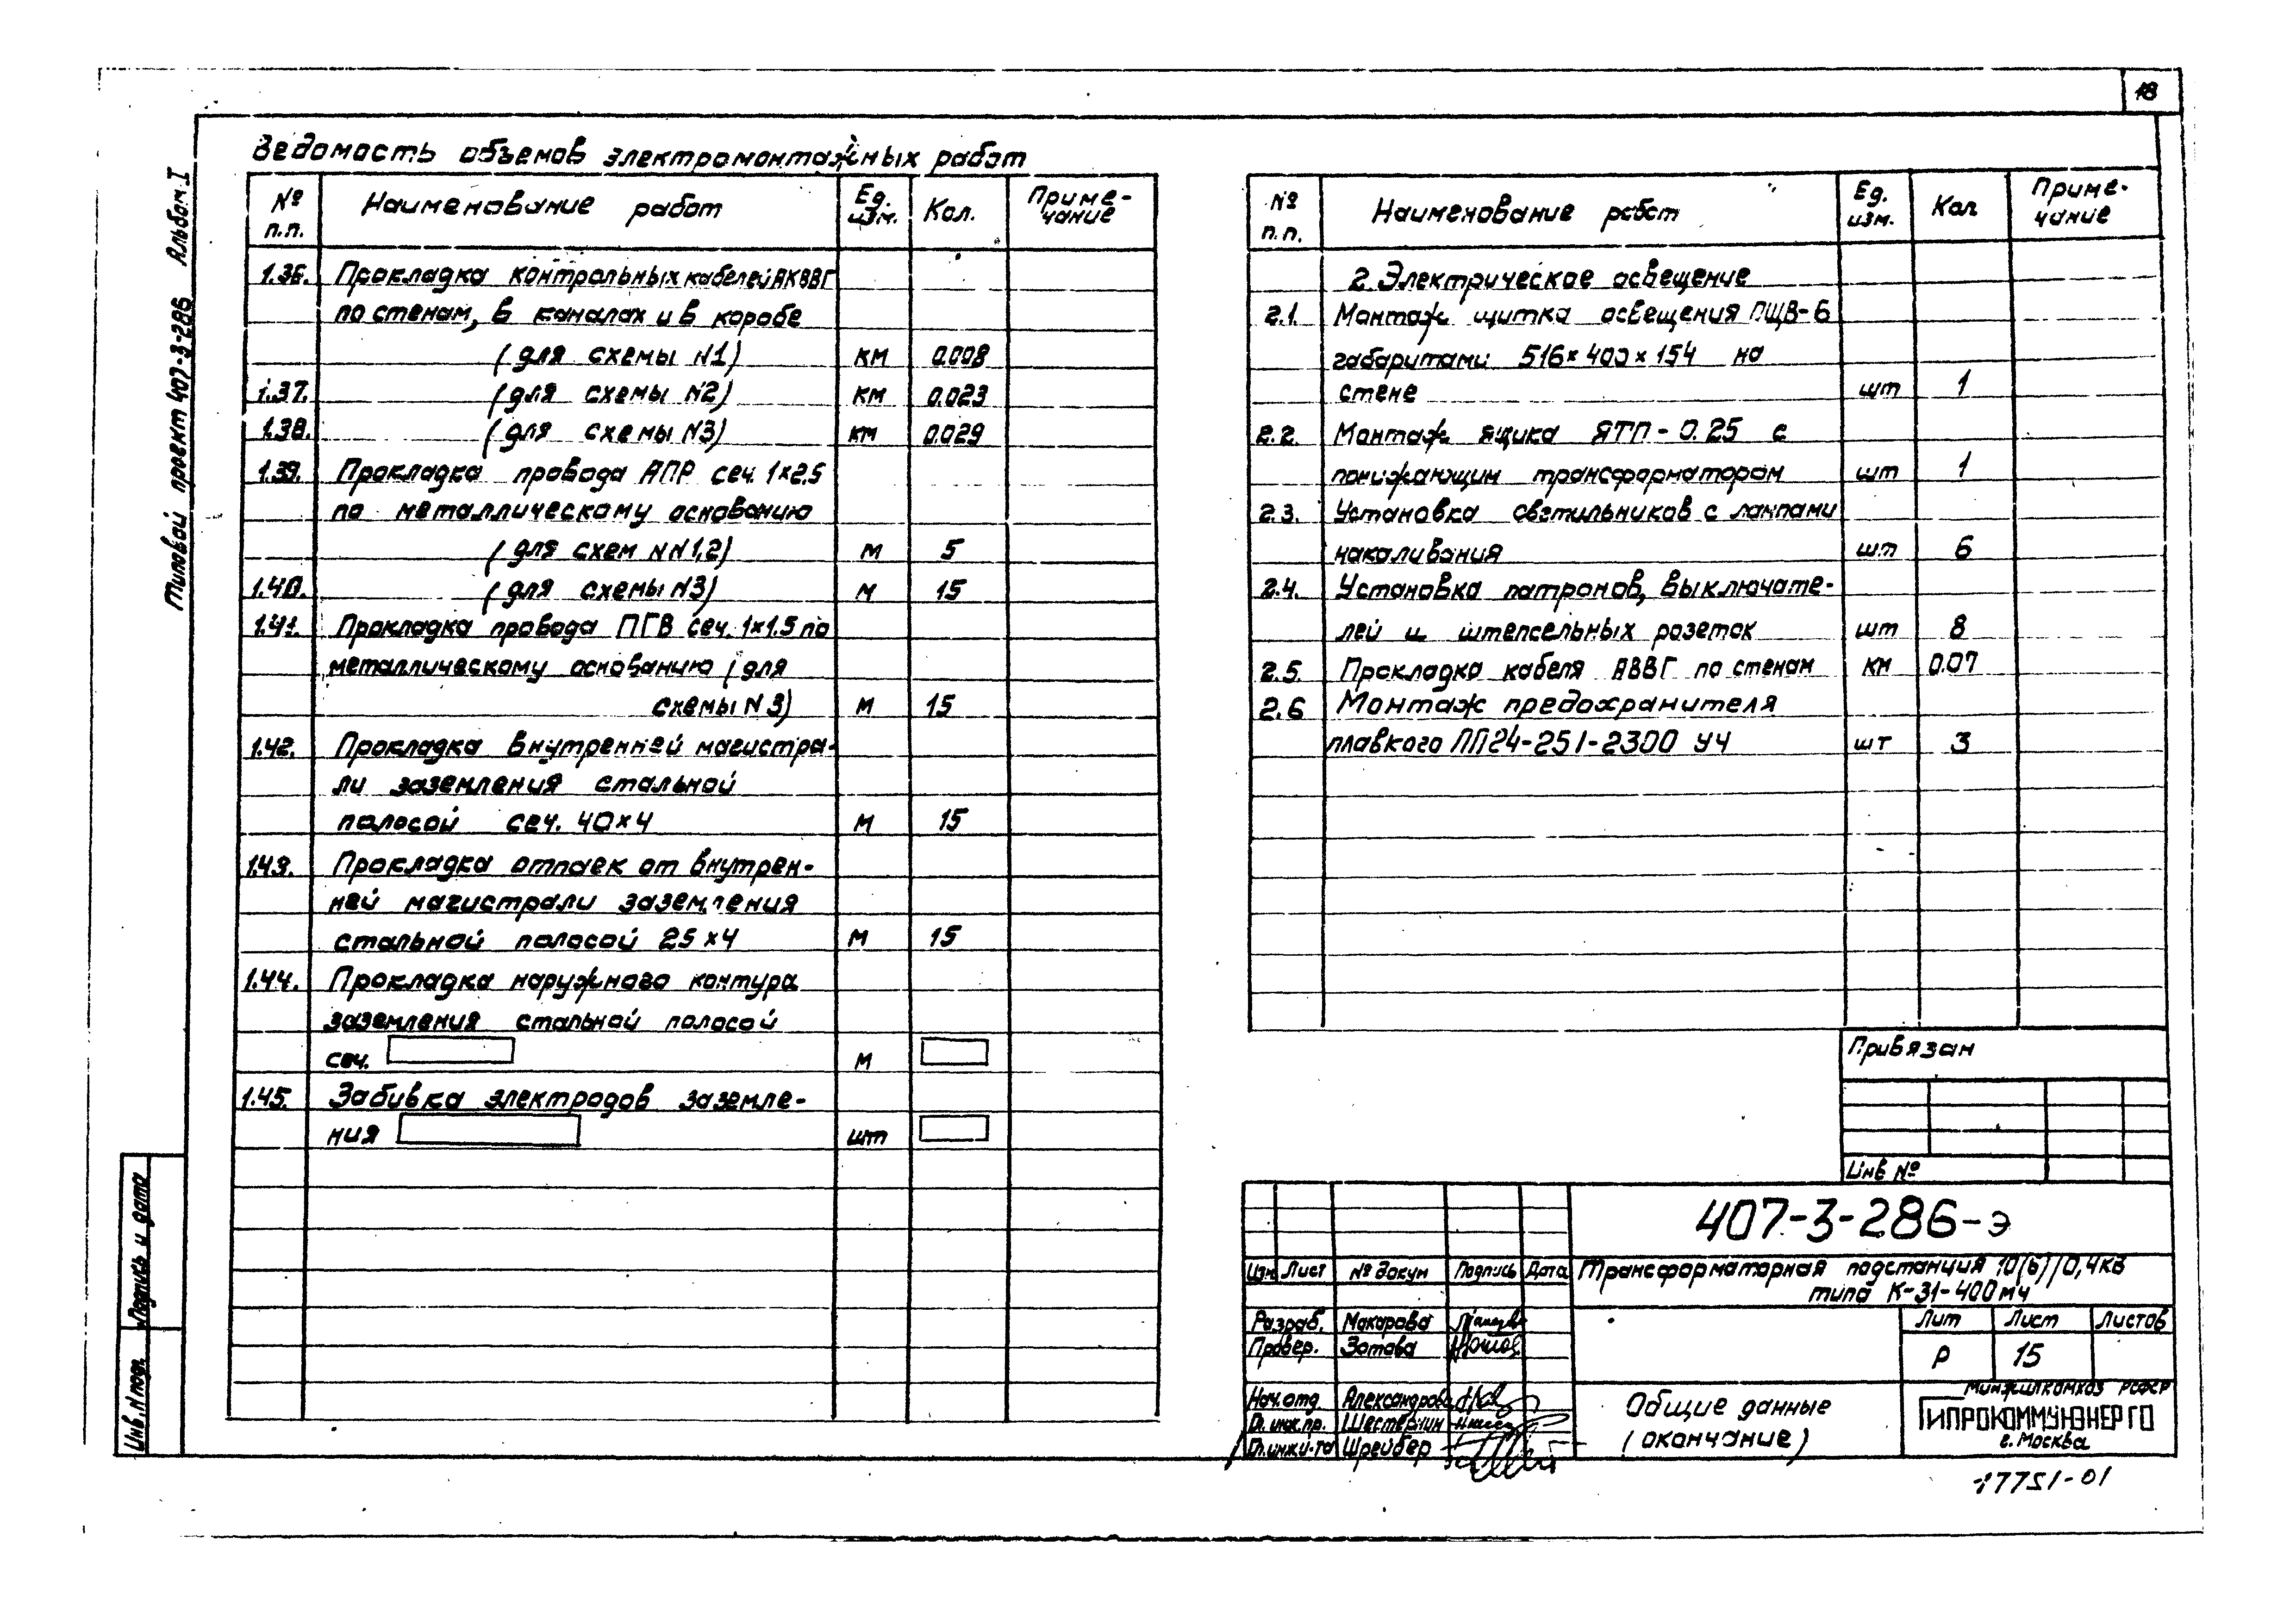 18
Типовой проект 407-3-286 Альбом I
Ведомость объемов электромонтажных работ
№ п.п. Наименование работ Ед. изм. Кол. Приме-чание
1.36. Прокладка контрольных кабелей АКВВГ
по стенам, в каналах и в коробе
(для схемы N1) км 0.008
1.37. (для схемы N2) км 0.023
1.38. (для схемы N3) км 0.029
1.39. Прокладка провода АПР сеч. 1×2.5
по металлическому основанию
(для схем NN1,2) м 5
1.40. (для схемы N3) м 15
1.41. Прокладка провода ПГВ сеч. 1×1.5 по
металлическому основанию (для
схемы N3) м 15
1.42. Прокладка внутренней магистра-
ли заземления стальной
полосой сеч. 40×4 м 15
1.43. Прокладка отпаек от внутрен-
ней магистрали заземления
стальной полосой 25×4 м 15
1.44. Прокладка наружного контура
заземления стальной полосой
сеч. м
1.45. Забивка электродов заземле-
ния шт
№ п.п. Наименование работ Ед. изм. Кол Приме-чание
2. Электрическое освещение
2.1. Монтаж щитка освещения ПЩВ-6
габаритами 516×400×154 на
стене шт 1
2.2. Монтаж ящика ЯТП-0.25 с
понижающим трансформатором шт 1
2.3. Установка светильников с лампами
накаливания шт 6
2.4. Установка патронов, выключате-
лей и штепсельных розеток шт 8
2.5 Прокладка кабеля АВВГ по стенам км 0.07
2.6 Монтаж предохранителя
плавкого ПП24-251-2300 У4 шт 3
Привязан
Инв №
407-3-286-э
Изм Лист № докум Подпись Дата
Трансформаторная подстанция 10(6)/0,4кв
типа К-31-400м4
Разраб. Макарова
Провер. Зотова
Нач. отд. Александрова
Гл. инж. пр. Шестернин
Гл. инж. и-та Шрейбер
Лит Лист Листов
Р 15
Общие данные
(окончание)
Минжилкомхоз РСФСР
ГИПРОКОММУНЭНЕРГО
г. Москва
17751-01
Подпись и дата
Инв. N подл.